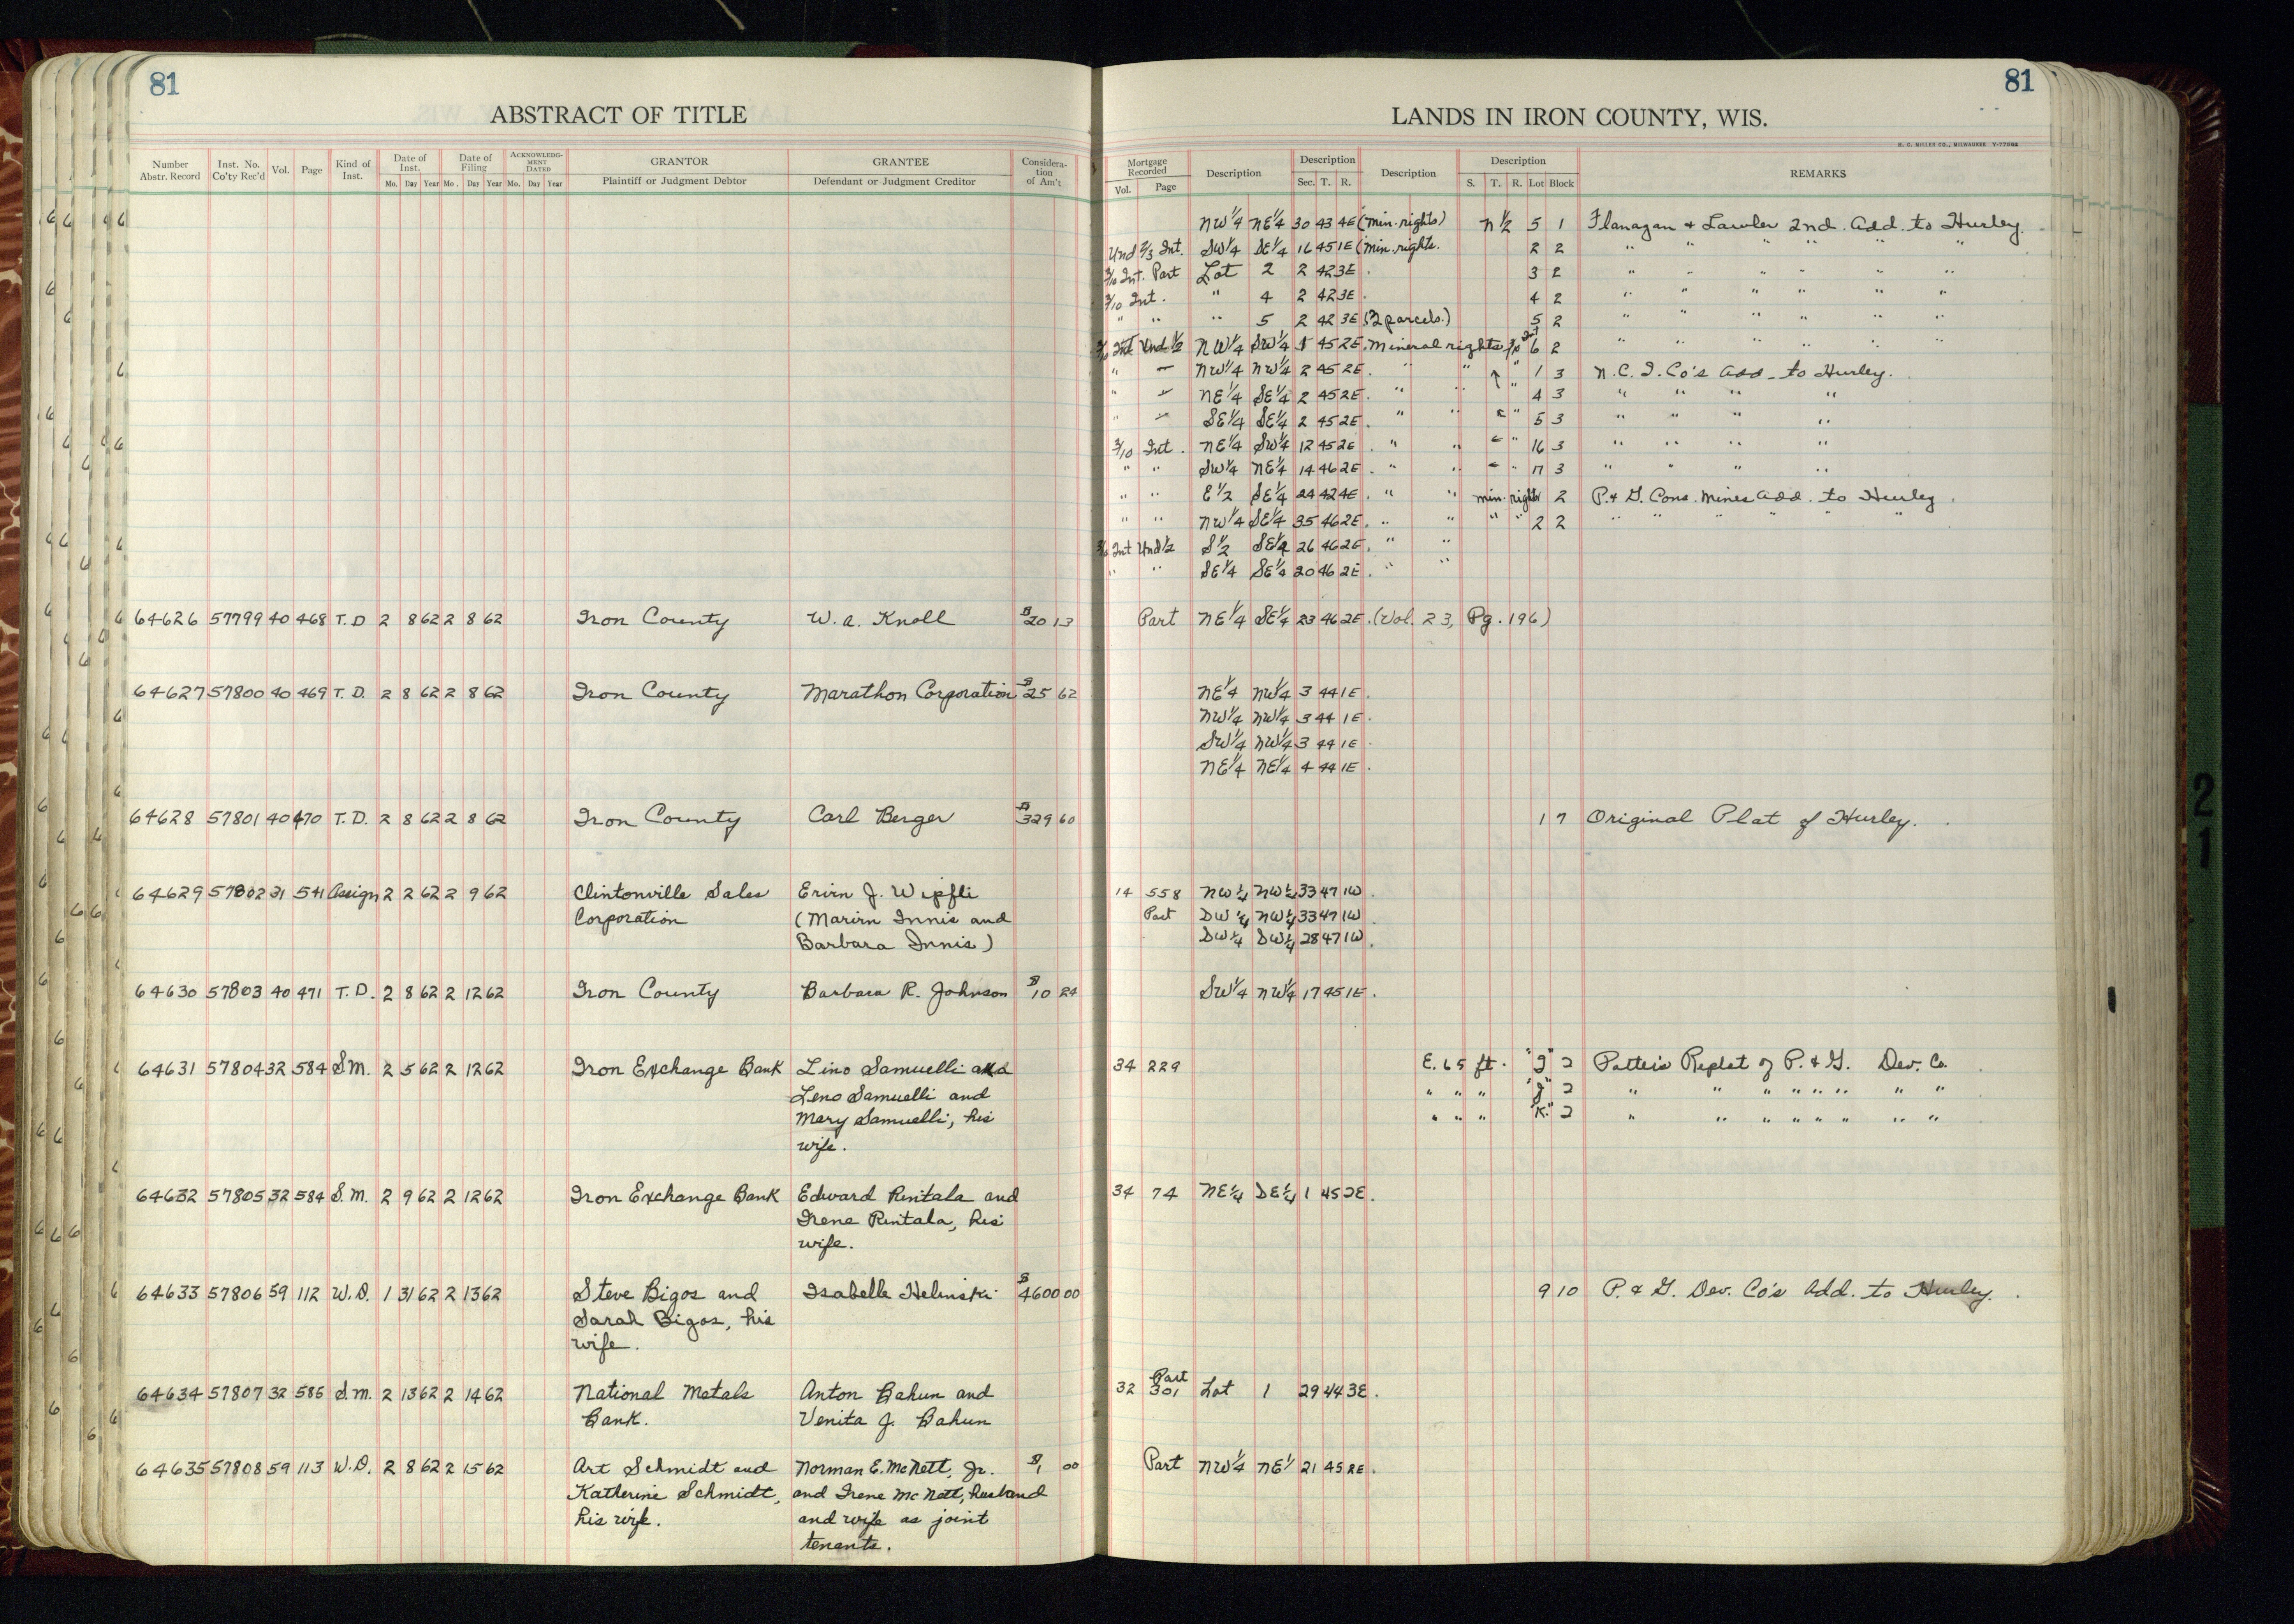 81
81
ABSTRACT OF TITLE
LANDS IN IRON COUNTY, WIS.
H. C. MILLER CO., MILWAUKEE
Number Abstr. Record Inst. No. Co'ty Rec'd Vol. Page Kind of Inst. Date of Inst. Mo. Day Year Date of Filing Mo. Day Year ACKNOWLEDGMENT DATED Mo. Day Year GRANTOR Plaintiff or Judgment Debtor GRANTEE Defendant or Judgment Creditor Consideration of Am't
Mortgage Recorded Vol. Page Description Description Sec. T. R. Description Description S. T. R. Lot Block REMARKS
NW¼ NE¼ 30 43 4E (min. rights) N½ 5 1 Flanagan & Lawler 2nd. Add. to Hurley.
Und ⅔ Int. SW¼ SE¼ 16 45 1E (min. rights. 2 2 " " " " " "
3/10 Int. Part Lot 2 2 42 3E. 3 2 " " " " " "
3/10 Int. " 4 2 42 3E. 4 2 " " " " " "
" " " 5 2 42 3E (2 parcels.) 5 2 " " " " " "
3/10 Int Und ½ NW¼ SW¼ 1 45 2E. Mineral rights 3/10 Int 6 2 " " " " " "
" NW¼ NW¼ 2 45 2E. " " " 1 3 N.C.I. Co's Add. to Hurley.
" NE¼ SE¼ 2 45 2E. " " " 4 3 " " " "
" SE¼ SE¼ 2 45 2E. " " " 5 3 " " " "
3/10 Int. NE¼ SW¼ 12 45 2E. " " " 16 3 " " " "
" " SW¼ NE¼ 14 46 2E. " " " 17 3 " " " "
" " E½ SE¼ 24 42 4E. " " min. rights 2 P. & G. Cons. Mines Add. to Hurley.
" " NW¼ SE¼ 35 46 2E. " " " " 2 2 " " " " " "
3/10 Int Und ½ S½ SE¼ 26 46 2E. " "
" " SE¼ SE¼ 20 46 2E. " "
64626 57799 40 468 T.D 2 8 62 2 8 62 Iron County W. A. Knoll $20 13 Part NE¼ SE¼ 23 46 2E. (Vol. 23, Pg. 196)
64627 57800 40 469 T.D. 2 8 62 2 8 62 Iron County Marathon Corporation $25 62 NE¼ NW¼ 3 44 1E.
NW¼ NW¼ 3 44 1E.
SW¼ NW¼ 3 44 1E.
NE¼ NE¼ 4 44 1E.
64628 57801 40 470 T.D. 2 8 62 2 8 62 Iron County Carl Berger $329 60 1 7 Original Plat of Hurley.
64629 57802 31 541 Assign 2 2 62 2 9 62 Clintonville Sales Erirn J. Wipfli 14 558 NW¼ NW¼ 33 47 1W.
Corporation (Marirn Innis and Part SW¼ NW¼ 33 47 1W.
Barbara Innis) SW¼ SW¼ 28 47 1W.
64630 57803 40 471 T.D. 2 8 62 2 12 62 Iron County Barbara R. Johnson $10 24 SW¼ NW¼ 17 45 1E.
64631 57804 32 584 S.M. 2 5 62 2 12 62 Iron Exchange Bank Lino Samuelli aka 34 229 E. 65 ft. "I" 2 Patteis Replat of P. & G. Dev. Co.
Leno Samuelli and " " " "J" 2 " " " " " " " "
Mary Samuelli, his " " " "K" 2 " " " " " " " "
wife.
64632 57805 32 584 S.M. 2 9 62 2 12 62 Iron Exchange Bank Edward Rintala and 34 74 NE¼ SE¼ 1 45 2E.
Irene Rintala, his
wife.
64633 57806 59 112 W.D. 1 31 62 2 13 62 Steve Bigos and Isabelle Helinski $4600 00 9 10 P. & G. Dev. Co's Add. to Hurley.
Sarah Bigos, his
wife.
64634 57807 32 585 S.M. 2 13 62 2 14 62 National Metals Anton Bahun and 32 Part 301 Lot 1 29 44 3E.
Bank. Venita J. Bahun
64635 57808 59 113 W.D. 2 8 62 2 15 62 Art Schmidt and Norman E. McNett, Jr. $1 00 Part NW¼ NE¼ 21 45 2E.
Katherine Schmidt, and Irene McNett, husband
his wife. and wife as joint
tenants.
2
1